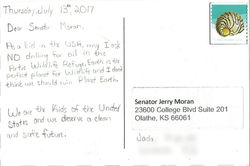 Thursday, July 13th, 2017
Dear Senator Moran,
As a kid in the USA, may I ask
NO drilling for oil in the
Artic Wildlife Refuge. Earth is the
perfect planet for Wildlife and I don't
think we should ruin Planet Earth.
We are the Kids of the United
States and we deserve a clean
and safe future.
Senator Jerry Moran
23600 College Blvd Suite 201
Olathe, KS 66061